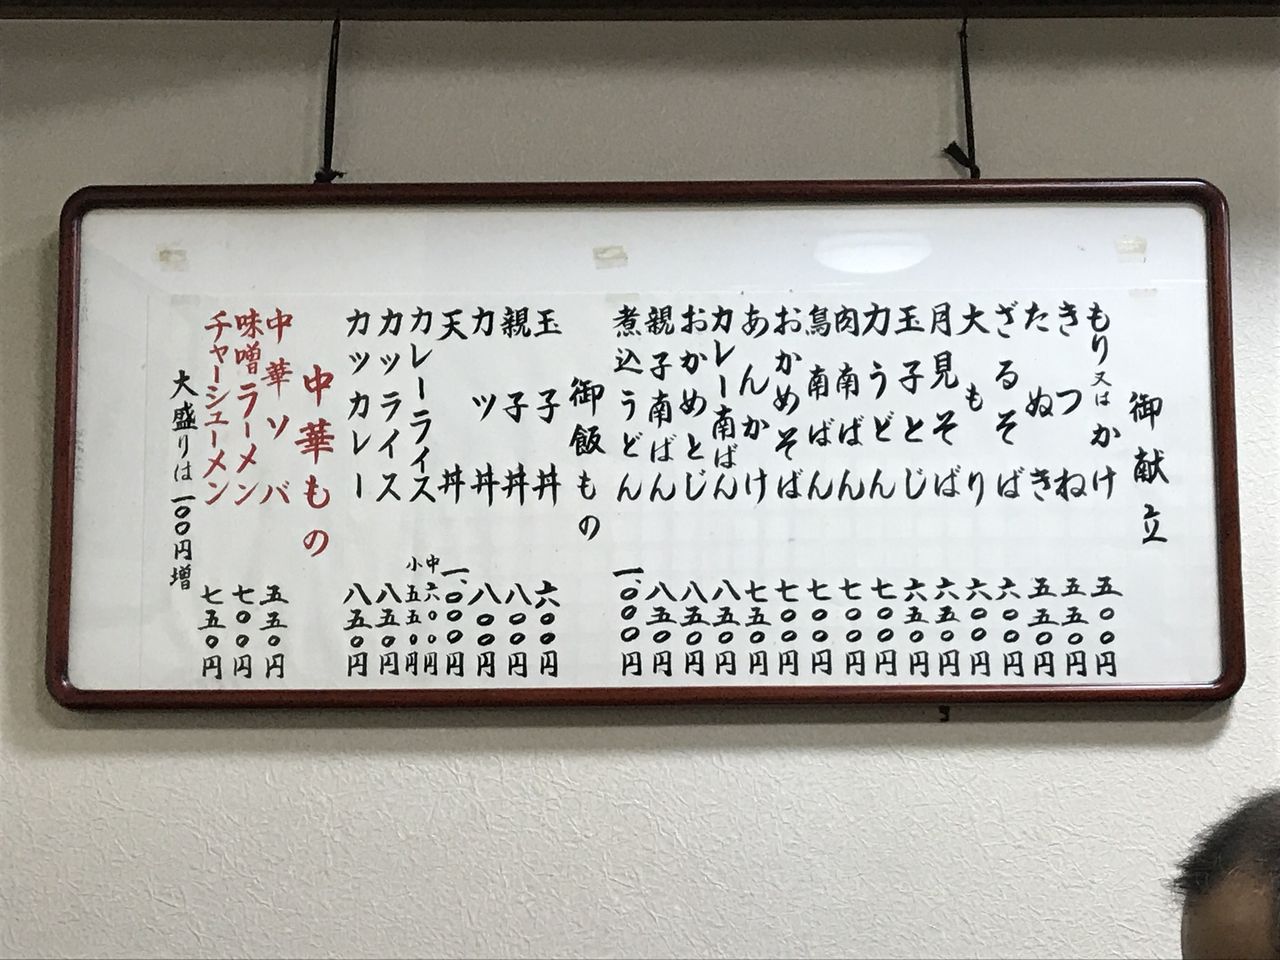 御献立
もり又はかけ 五〇〇円
きつね 五五〇円
たぬき 五五〇円
ざるそば 六〇〇円
大もり 六〇〇円
月見そば 六五〇円
玉子とじ 六五〇円
力うどん 七〇〇円
肉南ばん 七〇〇円
鳥南ばん 七〇〇円
おかめそば 七〇〇円
あんかけ 七五〇円
カレー南ばん 八五〇円
おかめとじ 八五〇円
親子南ばん 八五〇円
煮込うどん 一、〇〇〇円
御飯もの
玉子丼 六〇〇円
親子丼 八〇〇円
カツ丼 八〇〇円
天丼 一、〇〇〇円
カレーライス 中六〇〇円
小五五〇円
カツライス 八五〇円
カツカレー 八五〇円
中華もの
中華ソバ 五五〇円
味噌ラーメン 七〇〇円
チャーシューメン 七五〇円
大盛りは一〇〇円増